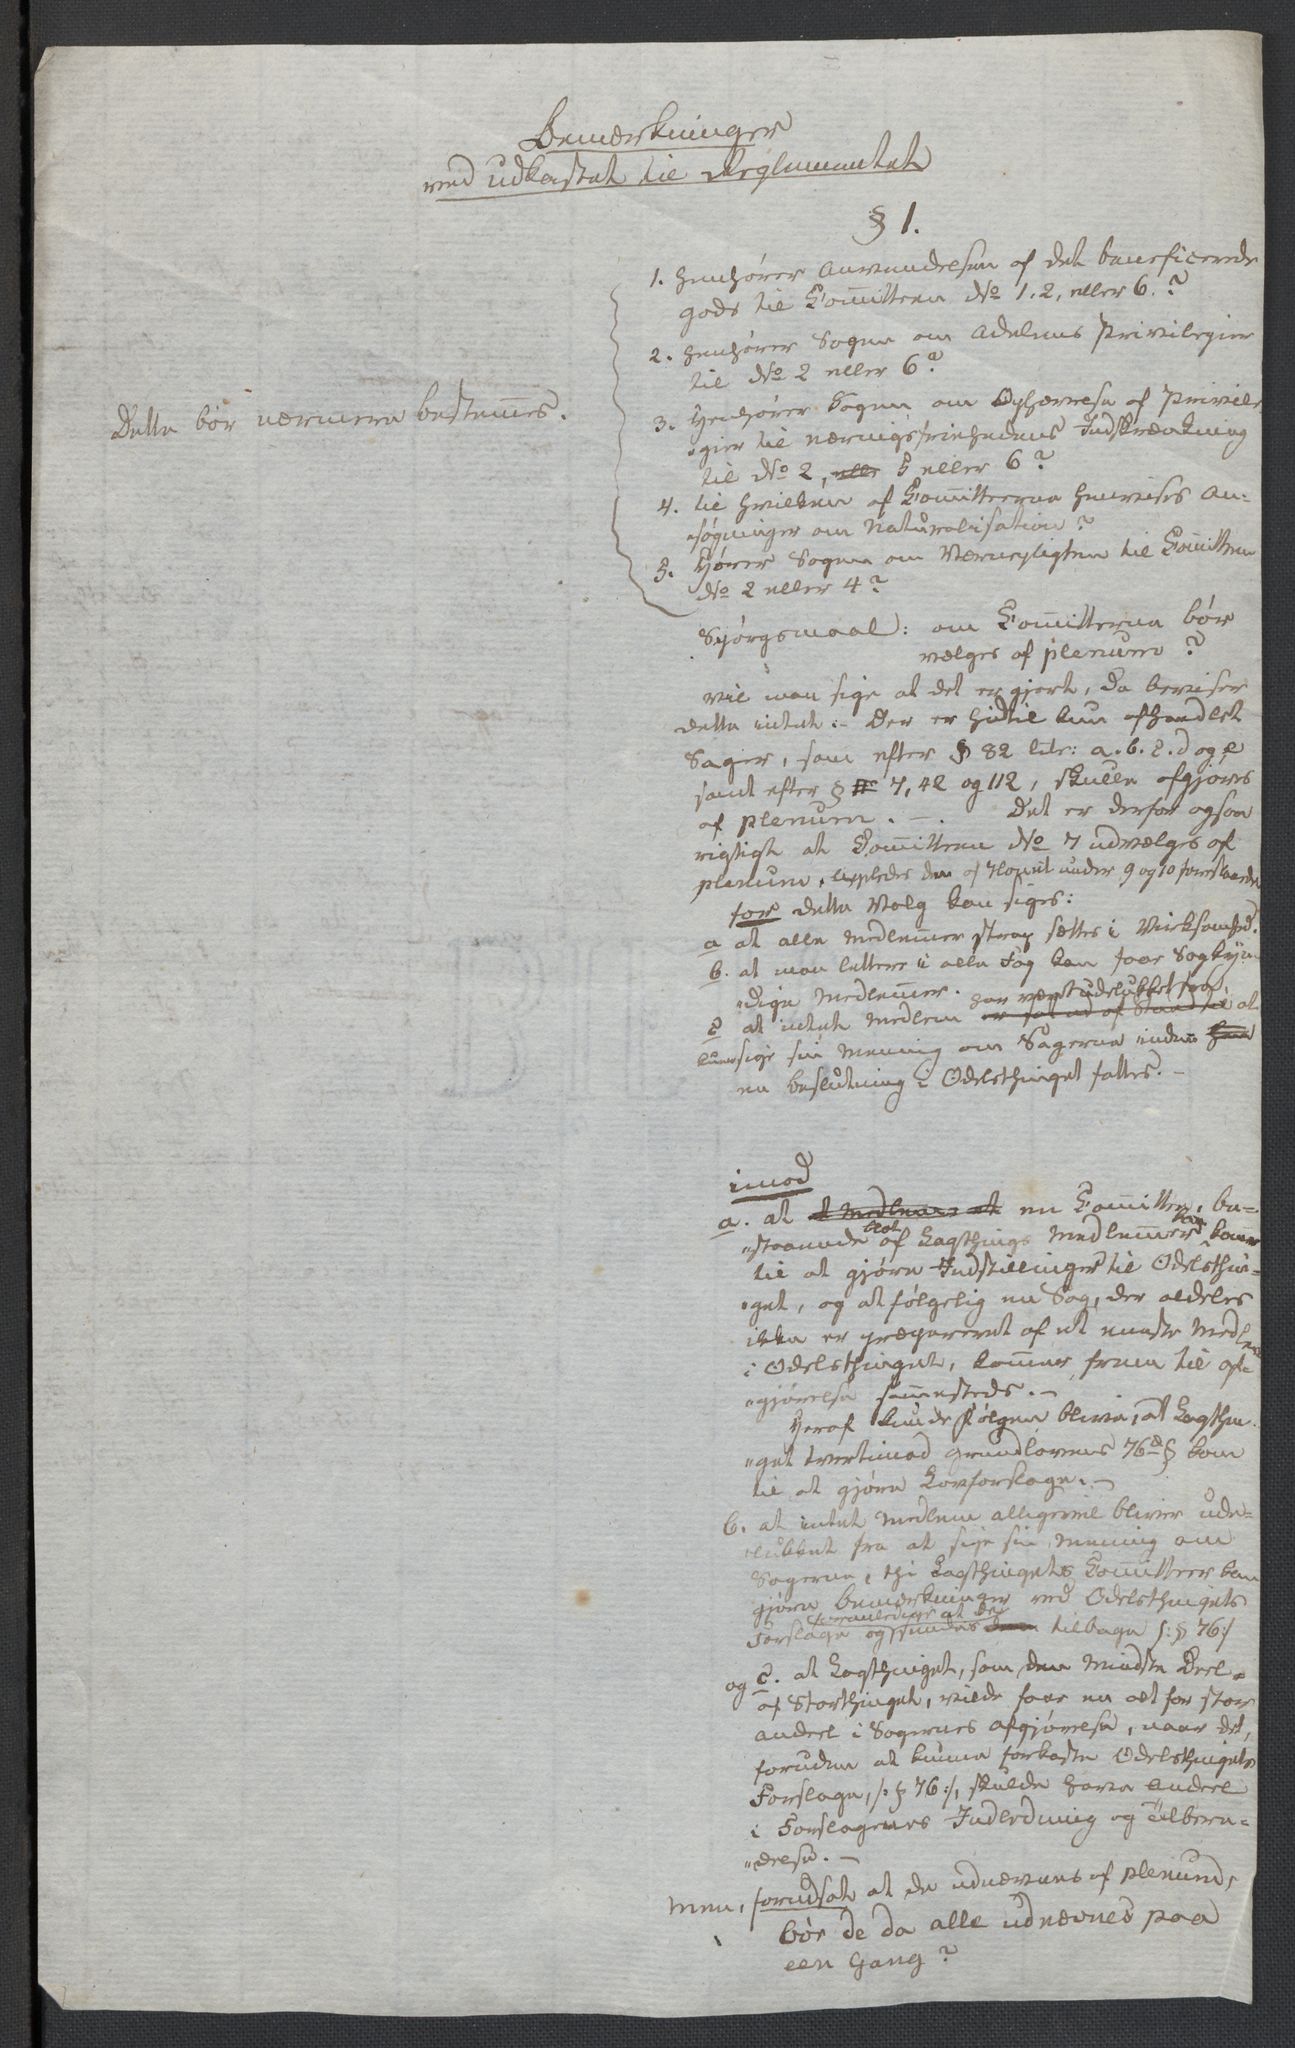 Bemærkninger
ved udkastet til Reglementet
§ 1.
1. henhører Anvendelsen af det beneficerede
gods til Committeen No 1, 2, eller 6.?
2. henhører Sagen om Adelens Privilegier
til No 2 eller 6?
Dette bør nærmere bestemes.
3. Henhører Sagen om Ophævelse af Privile
"gier til næringsfriehedens Indskrænkning
til No 2, elle 5 eller 6?
4. til hvilken af Committeerne henvises An-
"søgninger om Naturalisation?
5. Hører Sagen om Værnepligten til Comitteen
No 2 eller 4?
Spörgsmaal: om Comitteerne bör
vælges af plenum?
vil man sige at det er gjort, da beviser
dette intet.- Der er hidtil kun afhandlet
Sager, som efter § 82 litr: a. b. c. d og e
samt efter § 7, 42 og 112, skulle afgjøres
af plenum. -. Det er derfor ogsaa
rigtigt at Comitteen No 7 udvælges af
plenum, ligeledes den af under 9 og 10 foreslaaede
for dette Valg kan siges:
a at alle Medlemer strax sættes i Virksomhed.
b. at man lettere i alle Fag kan faae Sagkyn
"dige Medlemer.
har været udelukket fra
c at intet Medlem er sat ud af Stand til at
kunde sige sin Mening om Sagerne inden
en beslutning i Odelsthinget fattes. -
imod
a. at et Medlem at en Comittee, be-
blot kan
"staaende af Lagthings Medlemer komer
til at gjøre Indstillinger til Odelsthin-
"get, og at følgelig en Sag, der aldeles
ikke er præpareret af et eneste Medlem
i Odelsthinget, kommer frem til af-
"gjørelse samesteds. -
Heraf kunde Følgen blive, at Lagthin
"get tvertimod grundlovens 76de § kom
til at gjøre Lovforslage. -
b. at intet Medlem alligevel bliver ude-
"lukket fra at sige sin Mening om
Sagerne, thi Lagthingets Comitteer kan
gjøre bemærkninger ved Odelsthingets
foranledige at de
Forslage og sendes dem tilbage /: § 76:/
og c. at Lagthinget, som den mindste Deel
af Storthinget, vilde faae en alt for stor
andeel i Sagernes afgjørelse, naar det,
foruden at kunne forkaste Odelsthingets
Forslage, /: § 76:/, skulde have Andeel
i Forslagenes Indledning og Tilbere-
"delse. -
men, forudsat at de udnævnes af plenum,
bör de da alle udnævnes paa
een Gang?